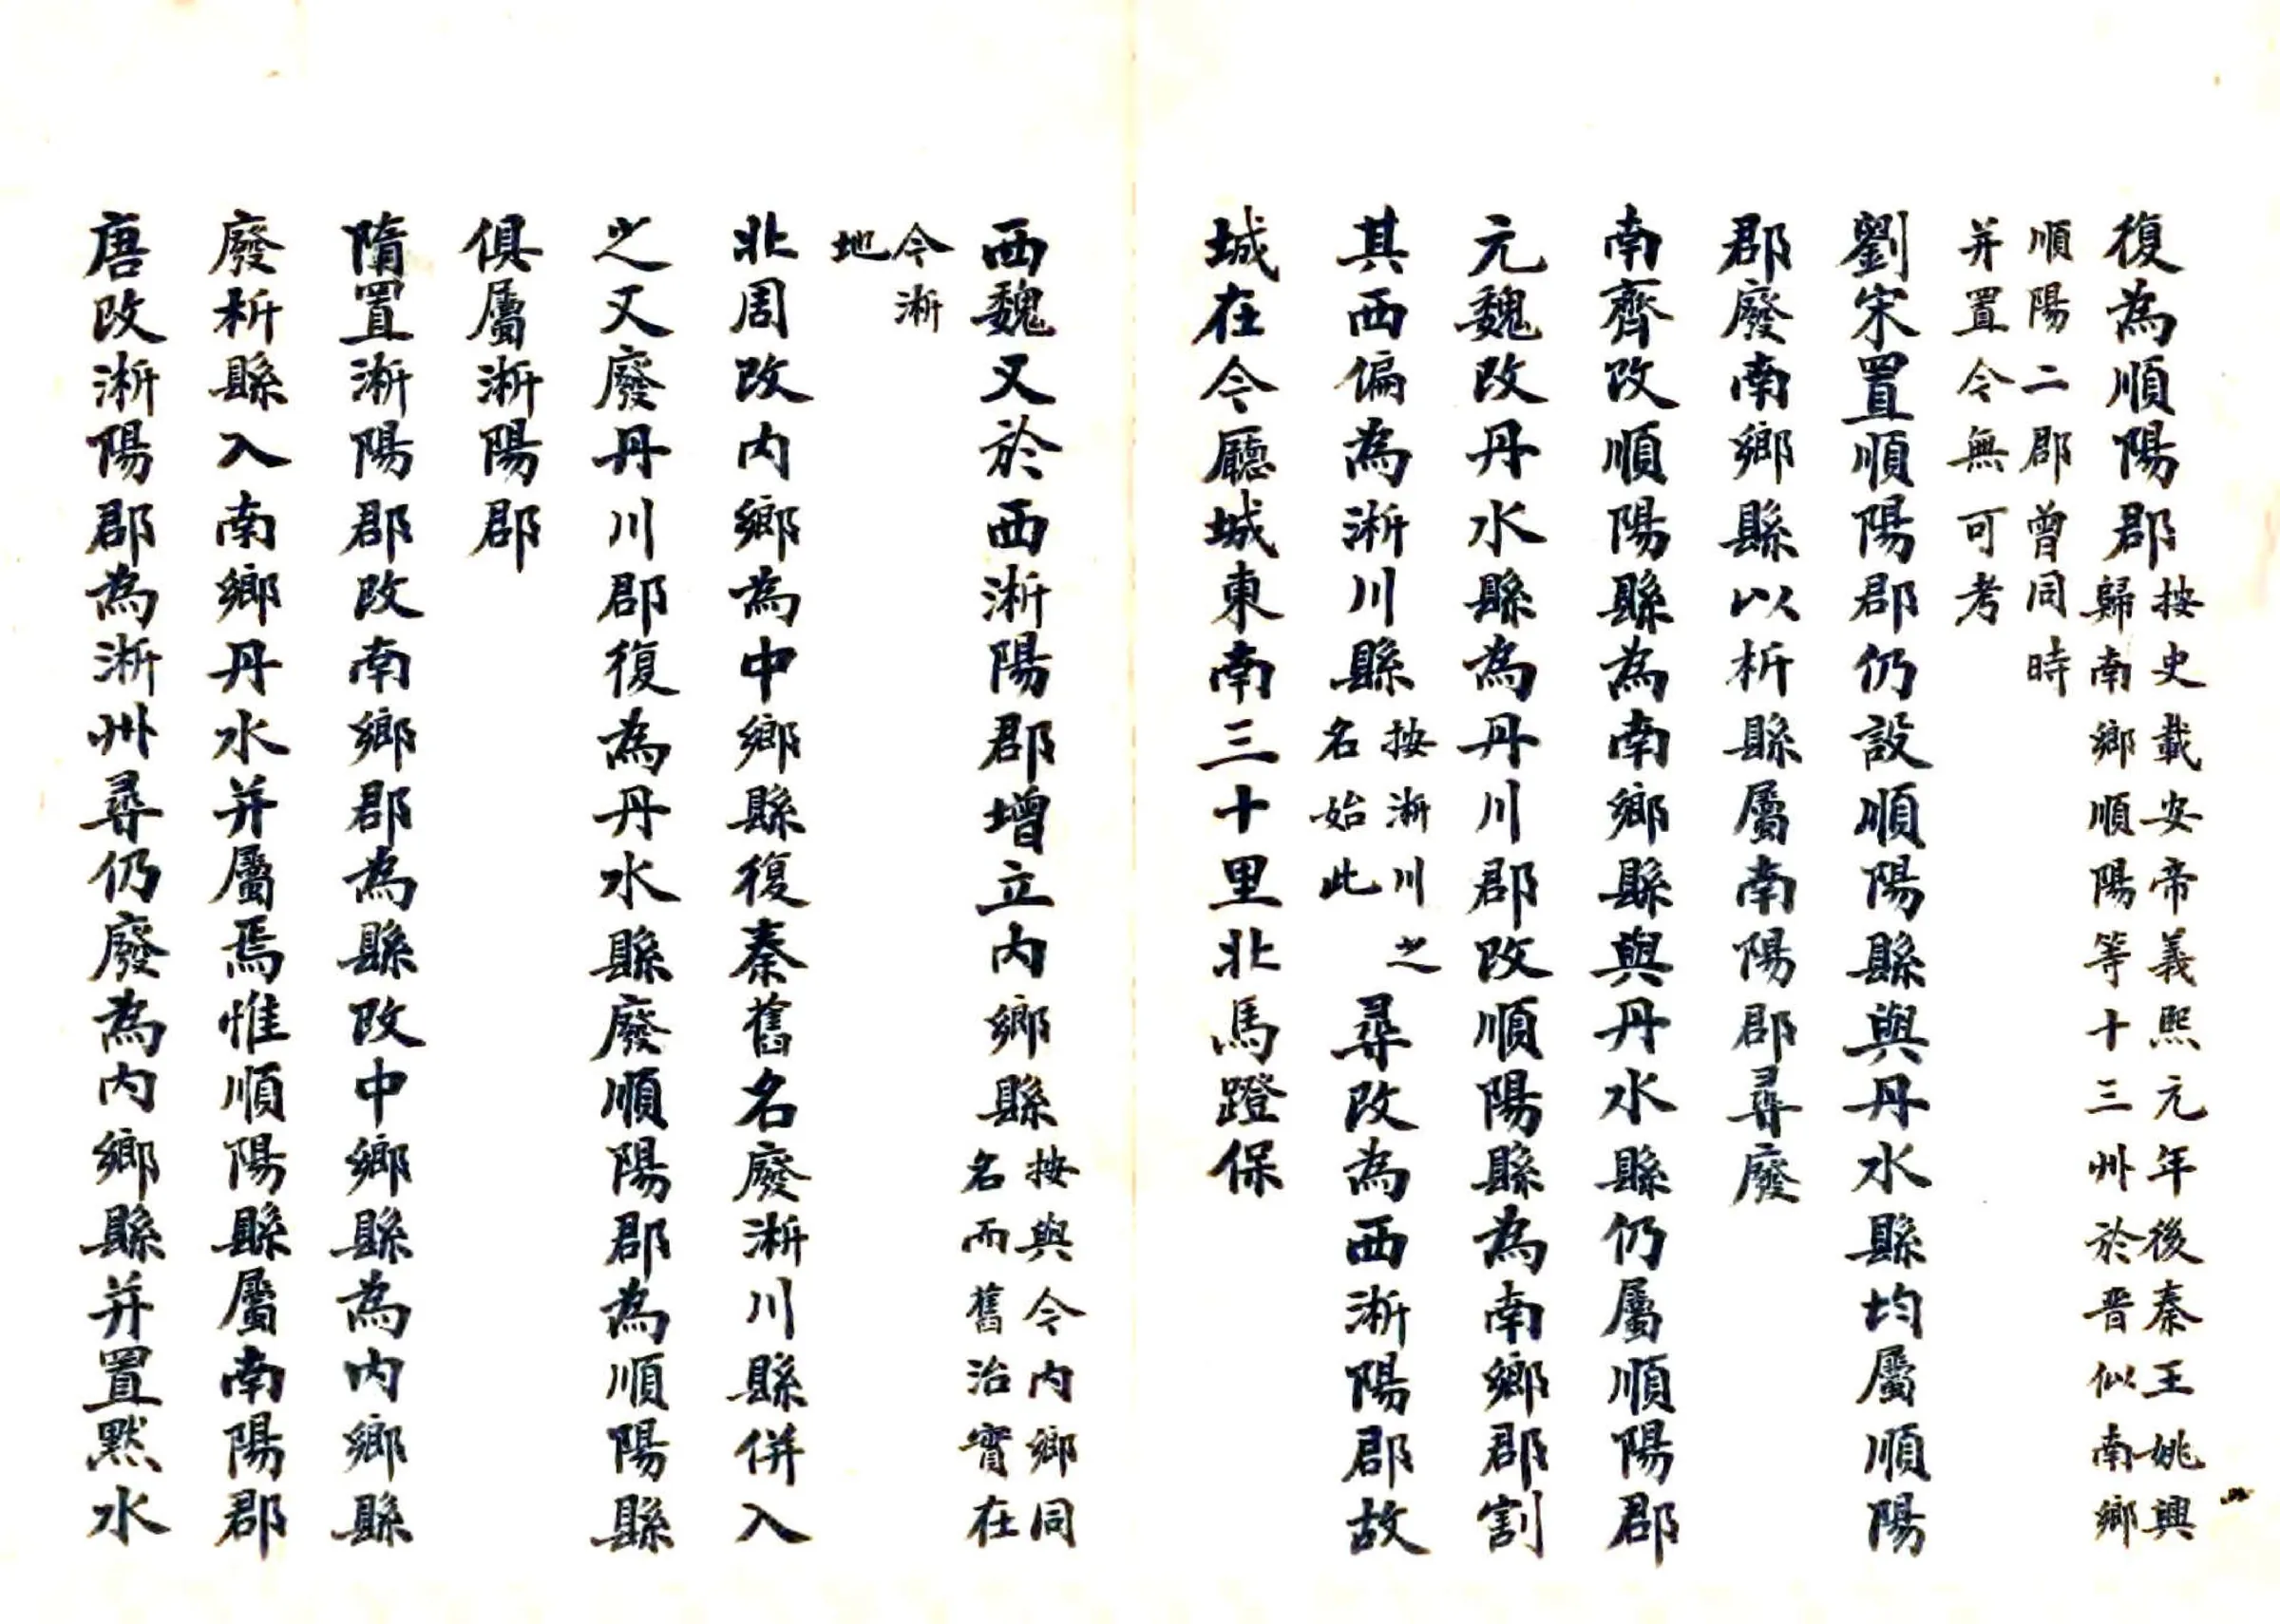 復為順陽郡按史載安帝義熙元年後秦王姚興
歸南鄉順陽等十三州於晋似南鄉
順陽二郡曾同時
并置今無可考
劉宋置順陽郡仍設順陽縣與丹水縣均屬順陽
郡廢南鄉縣以析縣屬南陽郡尋廢
南齊改順陽縣為南鄉縣與丹水縣仍屬順陽郡
元魏改丹水縣為丹川郡改順陽縣為南鄉郡割
其西偏為淅川縣按淅川之
名始此
尋改為西淅陽郡故
城在今廳城東南三十里北馬蹬保
西魏又於西淅陽郡增立內鄉縣按與今內鄉同
名而舊治實在
今淅
地
北周改內鄉為中鄉縣復秦舊名廢淅川縣併入
之又廢丹川郡復為丹水縣廢順陽郡為順陽縣
俱屬淅陽郡
隋置淅陽郡改南鄉郡為縣改中鄉縣為內鄉縣
廢析縣入南鄉丹水并屬焉惟順陽縣屬南陽郡
唐改淅陽郡為淅州尋仍廢為內鄉縣并置默水